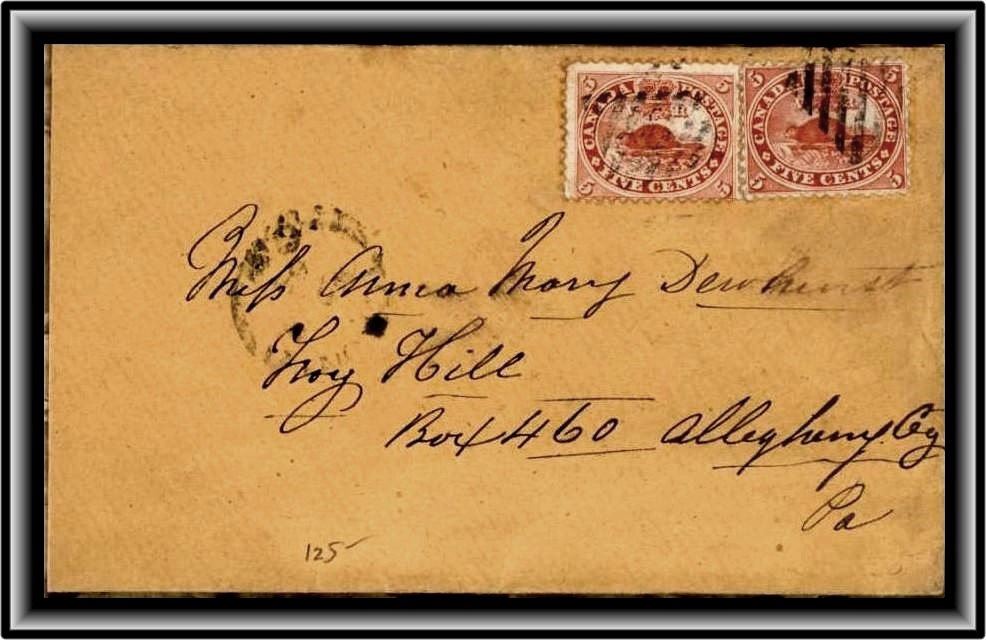 5 CANADA POSTAGE 5
5 FIVE CENTS 5
5 CANADA POSTAGE 5
5 FIVE CENTS 5
Miss Anna Mary Dewhurst
Troy Hill
Box 460 Allegheny Cy
Pa
125